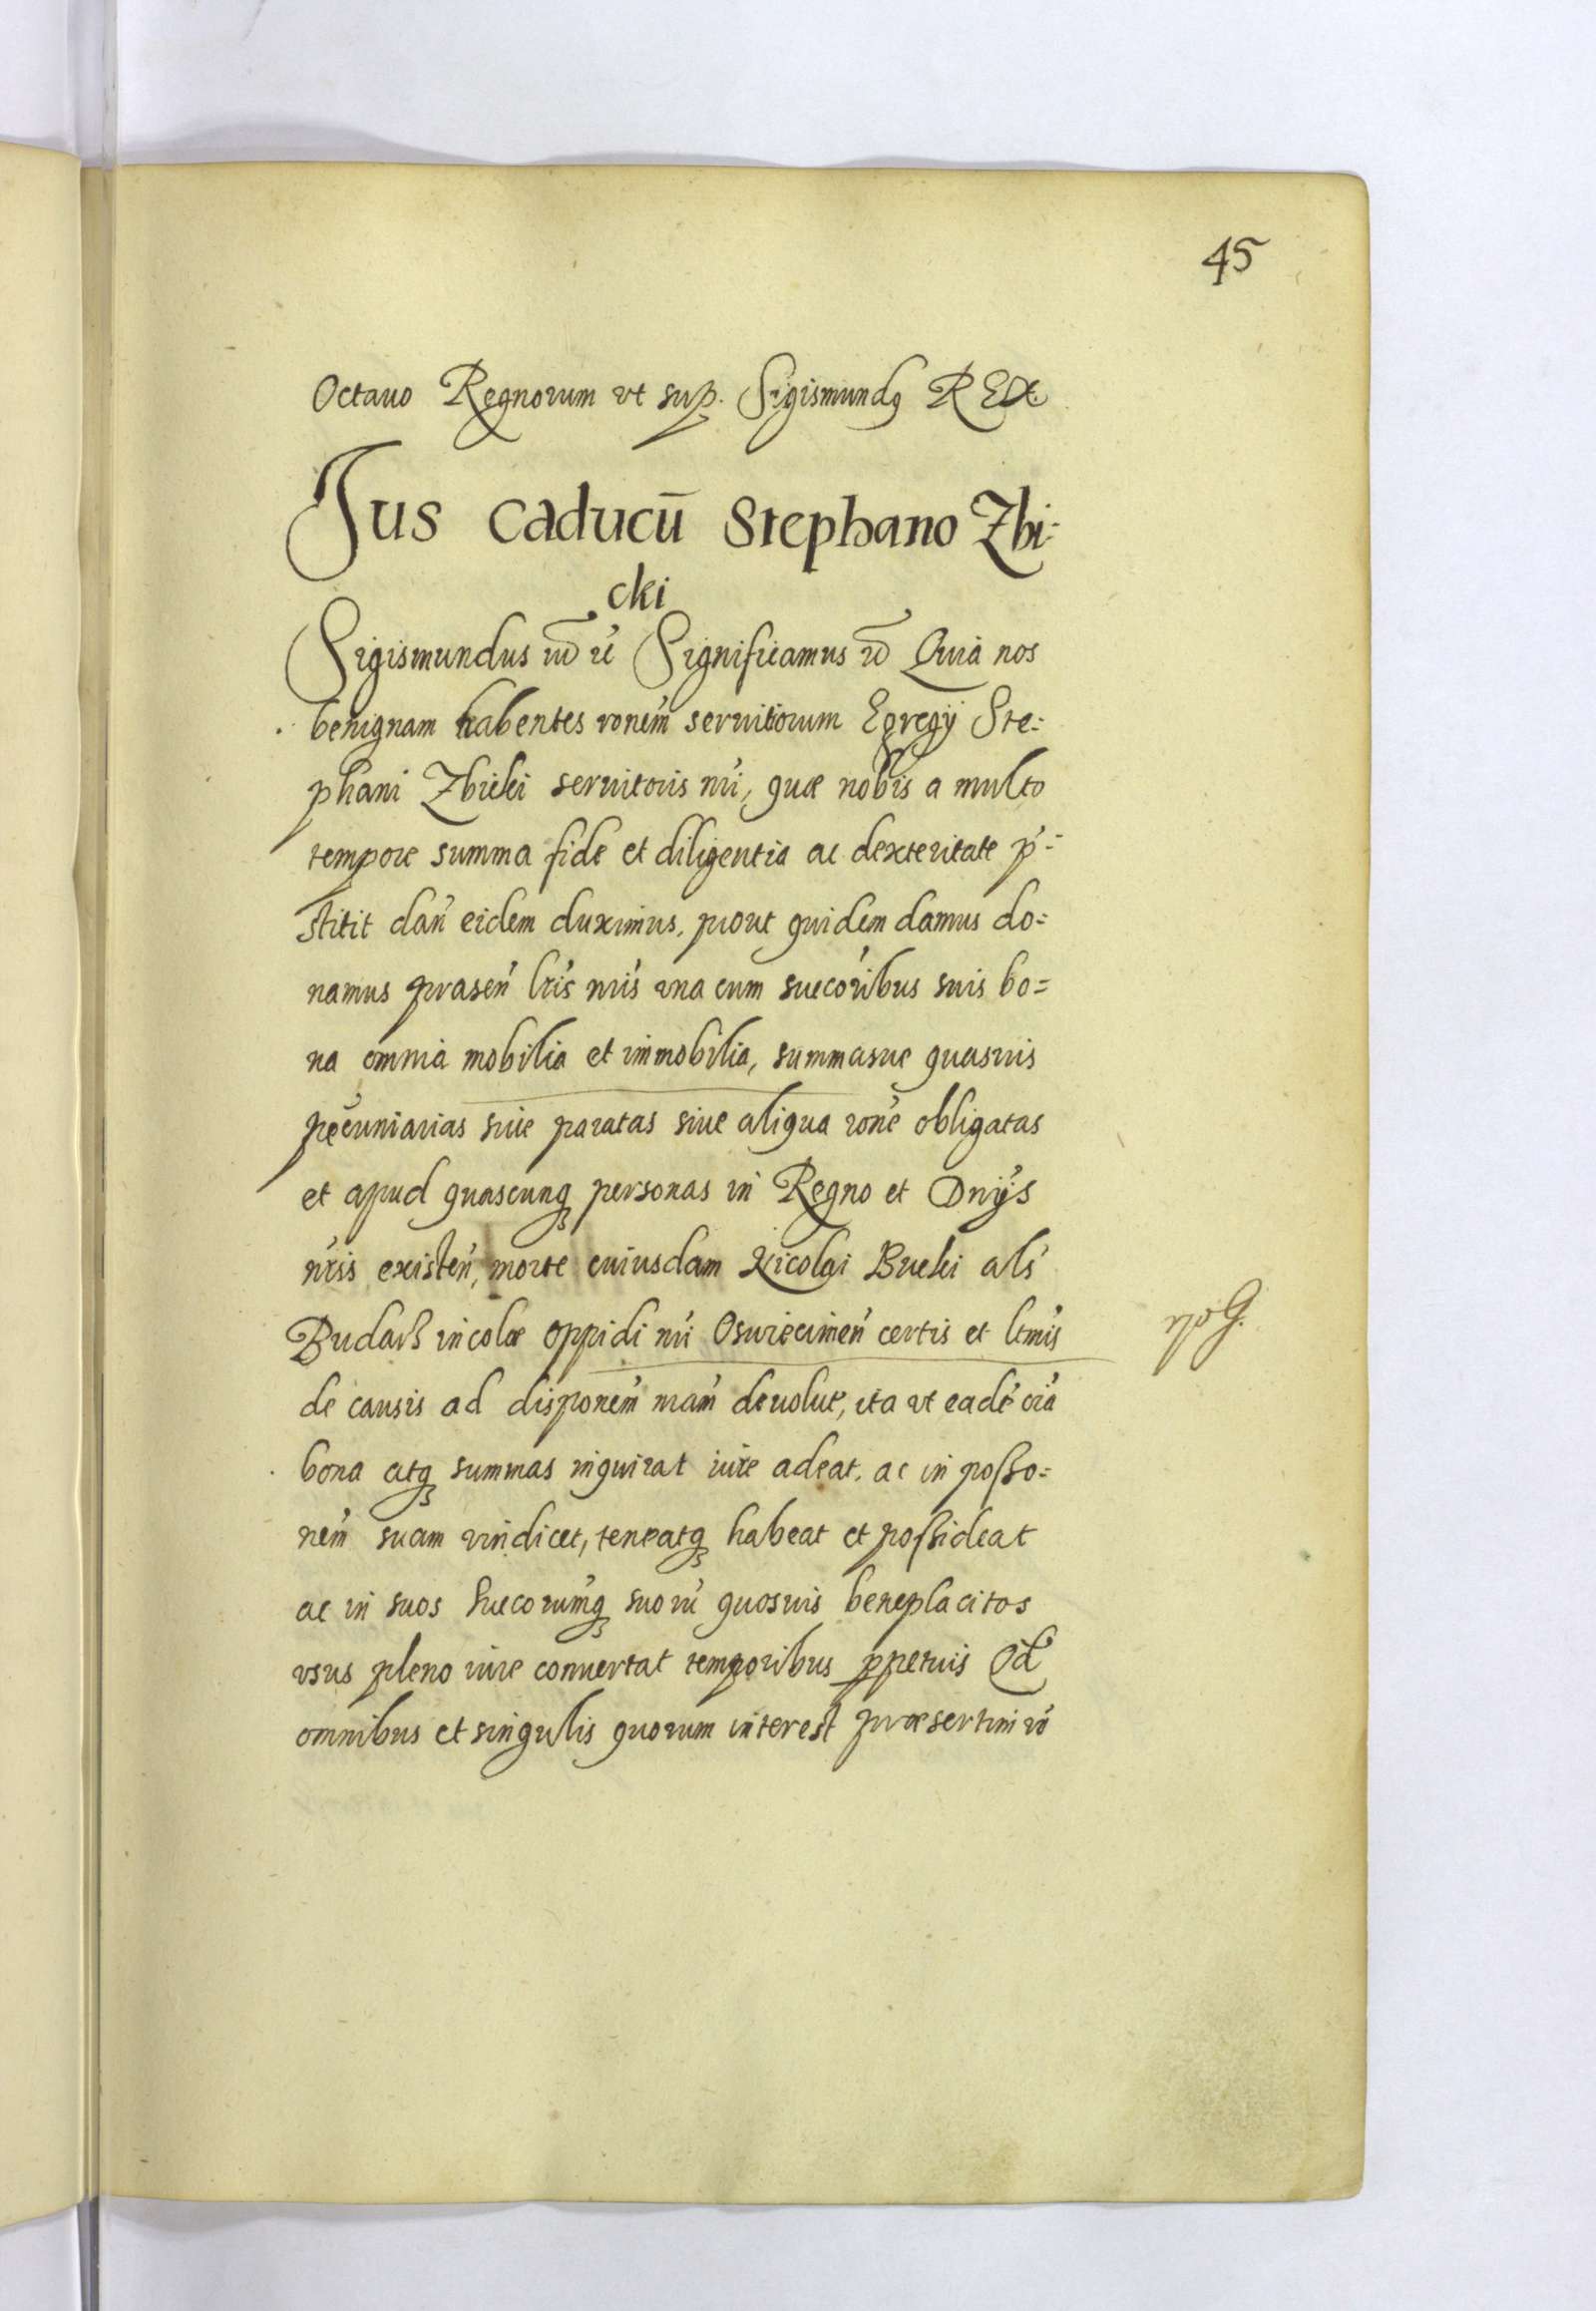 45
Octauo Regnorum vt sup. Sigismundꝯ REX
Jus caducū Stephano Zbi-
cki
Sigismundus Significamus Quia nos
benignam habentes ronem seruitiorum Egregij Ste-
phani Zbicki seruitoris nri, quæ nobis a multo
tempore summa fide et diligentia ac dexteritate p-
stitit dan eidem duximus, prout quidem damus do-
namus præsen lris nris vna cum succoribus suis bo-
na omnia mobilia et immobilia, summasue quasuis
pecuniarias siue paratas siue aliqua rone obligatas
et apud quascunq personas in Regno et Dnijs
nris existen, morte cuiusdam Nicolai Bucki als
incolæ oppidi nri Oswiecimen certis et ltmis
de causis ad disponem nram deuolut, ita vt eadē oīa
bona atq summas inquirat iure adeat, ac in posso-
nem suam vindicet, teneatq habeat et possideat
ac in suos succorumq suorū quosuis beneplacitos
vsus pleno iure conuertat temporibus ppetuis Qd
omnibus et singulis quorum interest præsertim vo